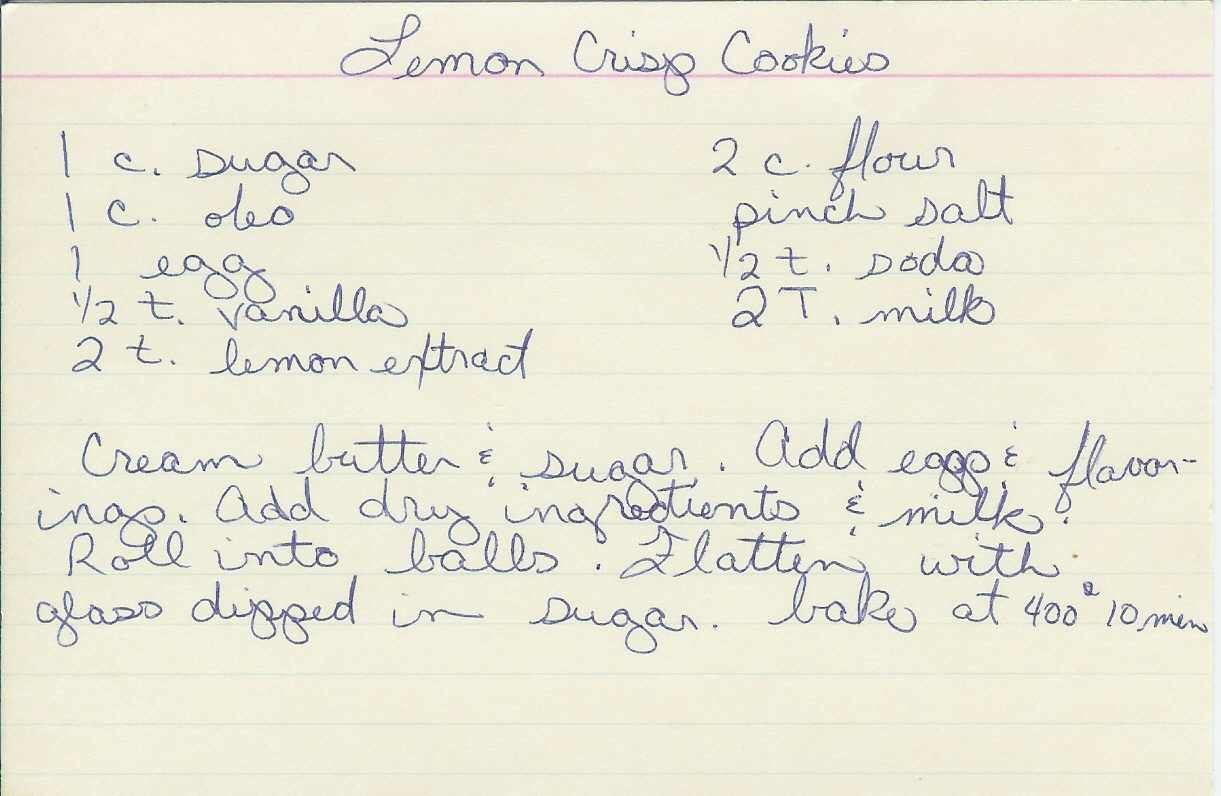 Lemon Crisp Cookies
1 c. sugar
1 c. oleo
1 egg
1/2 t. vanilla
2 t. lemon extract
2 c. flour
pinch salt
1/2 t. soda
2 T. milk
Cream butter & sugar. Add eggs & flavor-
ings. Add dry ingredients & milk.
Roll into balls. Flatten with
glass dipped in sugar. bake at 400° 10 min